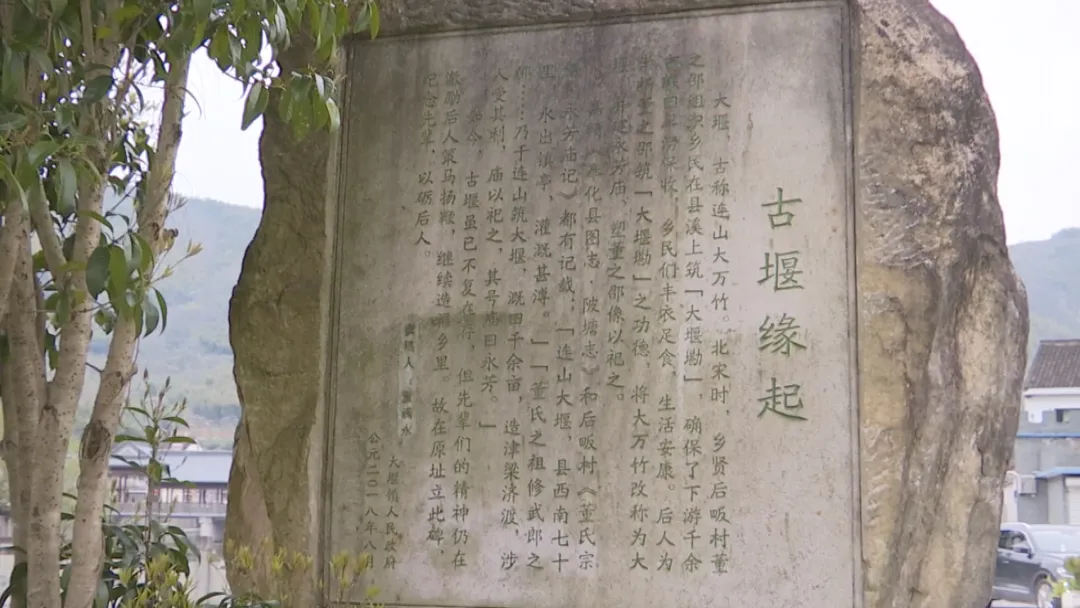 古堰缘起
大堰，古称连山大万竹。北宋时，乡贤后畈村董
之邵组织乡民在县溪上筑「大堰勘」，确保了下游千余
旱涝保收，乡民们丰衣足食，生活安康。后人为
之邵筑「大堰勘」之功德，将大万竹改称为大
永芳庙，塑董之邵像以祀之。
化县图志·陂塘志》和后畈村《董氏宗
永芳庙记》都有记载：「连山大堰，县西南七十
里，水出镇亭，灌溉甚溥。」「董氏之祖修武郎之
邵……乃于连山筑大堰，溉田千余亩，造津梁济渡，涉
人受其利，庙以祀之，其号庙曰永芳。」
如今，古堰虽已不复存在，但先辈们的精神仍在
激励后人策马扬鞭，继续造福乡里。故在原址立此碑，
纪念先辈，以励后人。
大堰镇人民政府
公元二〇一八年八月